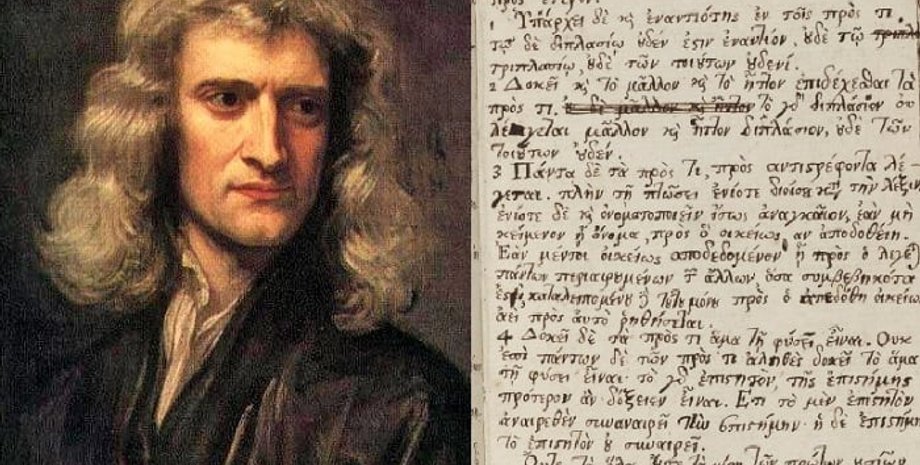 1 Ὑπάρχει δὲ κ̀ ἐναντιότης ἐν τοῖς πρὸς τι
τῷ δὲ διπλασίῳ οὐδέν ἐστιν ἐναντίον, οὐδὲ τῷ
τριπλασίῳ, οὐδὲ τῶν τοιούτων οὐδενί.
2 Δοκεῖ κ̀ τὸ μᾶλλον κ̀ τὸ ἧττον ἐπιδέχεσθαι τὰ
πρὸς τι. τὸ γδ διπλάσιον οὐ
λέγεται μᾶλλον κ̀ ἧττον διπλάσιον, οὐδὲ τῶν
τοιούτων οὐδέν.
3 Πάντα δὲ τὰ πρὸς τι, πρὸς ἀντιστρέφοντα λέ
γεται. πλὴν τῇ πτώσει ἐνίοτε διοίσει κτ̀ τὴν λέξιν
ἐνίοτε δὲ κ̀ ὀνοματοποιεῖν ἴσως ἀναγκαῖον, ἐὰν μὴ
κείμενον ᾖ ὄνομα, πρὸς ὃ οἰκείως ἂν ἀποδοθείη.
Ἐὰν μέντοι οἰκείως ἀποδεδομένον ᾖ πρὸς ὃ λέγε
πάντων περιαιρουμένων τ̃ ἄλλων ὅσα συμβεβηκότα
ἐστι, καταλειπομένου τούτου μόνου πρὸς ὃ ἀπεδόθη οἰκείω
ἀεὶ πρὸς αὐτὸ ῥηθήσεται.
4 Δοκεῖ δὲ τὰ πρὸς τι ἅμα τῇ φύσει εἶναι. Οὐκ
ἐπὶ πάντων δὲ τῶν πρὸς τι ἀληθὲς δοκεῖ τὸ ἅμα
τῇ φύσει εἶναι· τὸ γδ ἐπιστητὸν, τῆς ἐπιστήμης
πρότερον ἂν δόξειεν εἶναι. Ἔτι τὸ μὲν ἐπιστητὸν
ἀναιρεθὲν συναναιρεῖ τὴν ἐπιστήμην· ἡ δὲ ἐπιστήμη
τὸ ἐπιστητὸν οὐ συναιρεῖ.